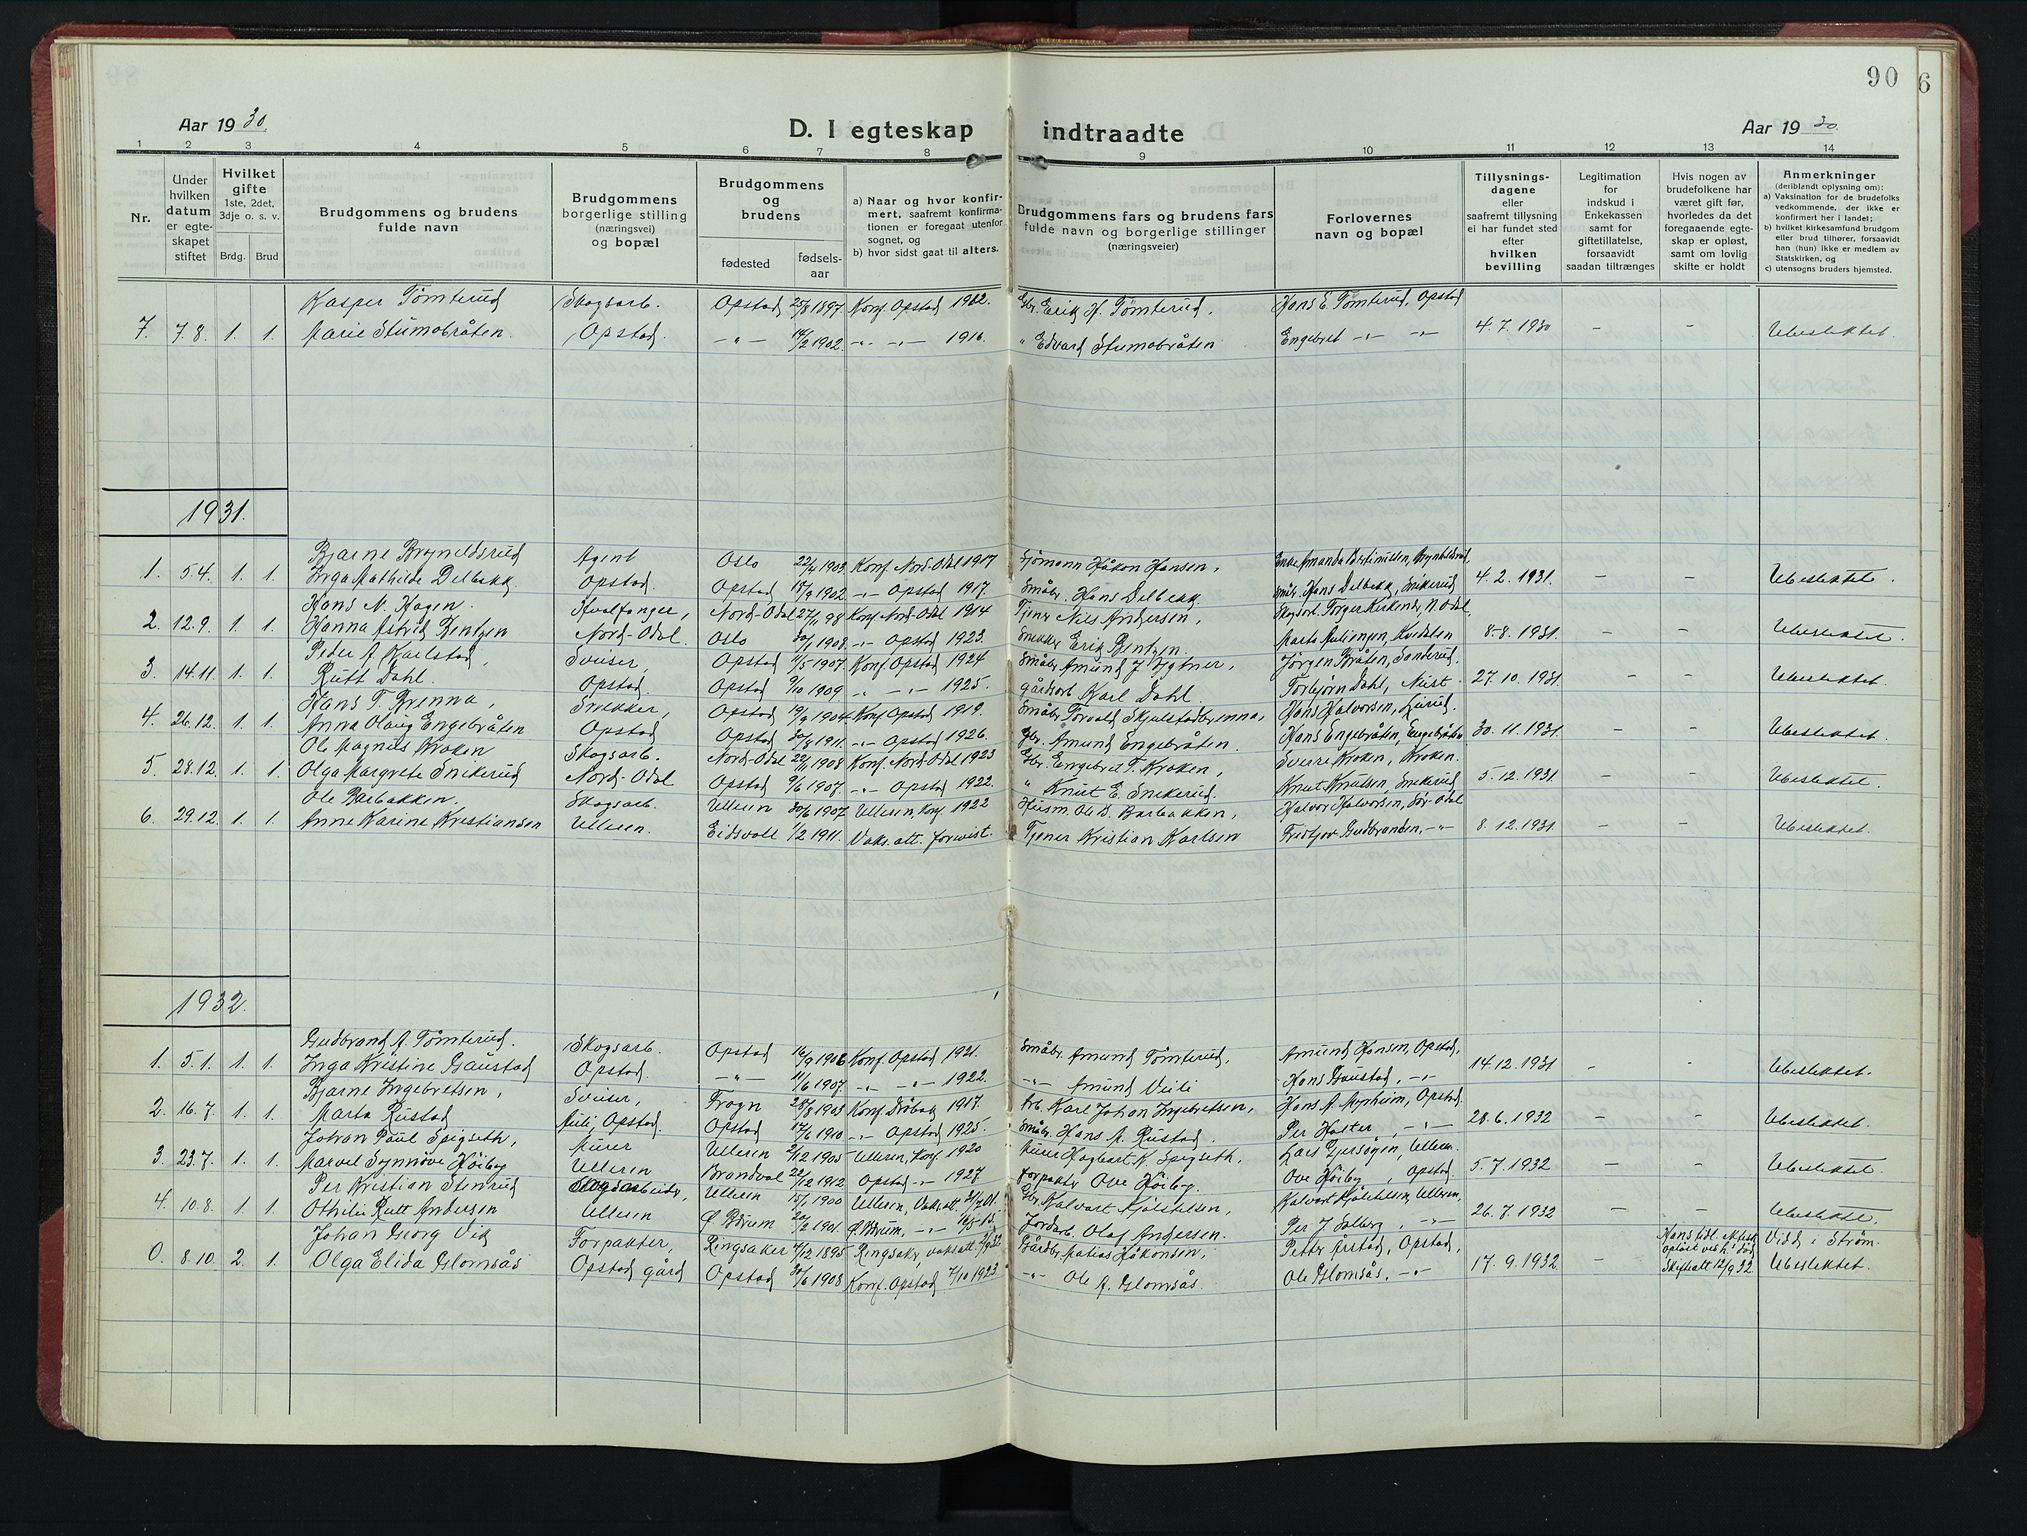 90
6
Aar 1930.
D. I egteskap indtraadte
Aar 1930.
1 2 3 4 5 6 7 8 9 10 11 12 13 14
Nr.
Under hvilken datum er egteskapet stiftet
Hvilket gifte 1ste, 2det, 3dje o. s. v.
Brdg. Brud
Brudgommens og brudens fulde navn
Brudgommens borgerlige stilling (næringsvei) og bopæl
Brudgommens og brudens
fødested
fødselsaar
a) Naar og hvor konfirmert, saafremt konfirmationen er foregaat utenfor sognet, og
b) hvor sidst gaat til alters.
Brudgommens fars og brudens fars fulde navn og borgerlige stillinger (næringsveier)
Forlovernes navn og bopæl
Tillysningsdagene eller saafremt tillysning ei har fundet sted efter hvilken bevilling
Legitimation for indskud i Enkekassen samt for giftetillatelse, forsaavidt saadan tiltrænges
Hvis nogen av brudefolkene har været gift før, hvorledes da det foregaaende egteskap er opløst, samt om lovlig skifte er holdt
Anmerkninger (deriblandt oplysning om):
a) Vaksination for de brudefolks vedkommende, der ikke er konfirmert her i landet;
b) hvilket kirkesamfund brudgom eller brud tilhører, forsaavidt han (hun) ikke er medlem av Statskirken, og
c) utensogns bruders hjemsted.
Kasper Tømterud Skogsarb. Opstad 25/8 1897 Konf. Opstad 1912. Gbr. Erik H. Tømterud, Hans E. Tømterud, Opstad
7. 7.8. 1. 1. Marie Stumobråten Opstad. -"- 14/2 1902. -"- -"- 1916. " Edvard Stumobråten Engebret -"- -"- 4.7.1930 - - Ubeslektet.
1931.
Bjarne Brynildsrud Agent Oslo 22/4 1903 Konf. Nord-Odal 1917 Sjømann Håkon Hansen, Enke Amanda Bertinussen, Brynildsrud,
1. 5.4. 1. 1. Inga Mathilde Delbekk. Opstad. Opstad 18/9 1902 -"- Opstad 1917. Småbr. Hans Delbekk Småbr. Hans Delbekk, Snikerud 4.2.1931. - - Ubeslektet.
Hans N. Hagen. Hvalfanger, Nord-Odal 27/11 98 Konf. Nord-Odal 1914 Tjener Nils Andersen, Skogsarb. Torger Kirkenær, N. Odal,
2. 12.9. 1. 1. Hanna Astrid Bentzen Nord-Odal. Oslo 30/1 1908. -"- Opstad 1923. Snekker Erik Bentzen. 8-8.1931. - - Ubeslektet.
Peder A. Karlstad, Sveiser, Opstad 11/5 1907 Konf. Opstad 1924 Småbr. Amund J. Jørgen Bråten, Sanderud.
3. 14.11. 1. 1. Rutt Dahl. Opstad. Opstad 9/10 1909. -"- -"- 1925. gårdsarb. Karl Dahl Torbjørn Dahl, 27.10.1931 - - Ubeslektet.
Hans T. Brenna, Snekker, Opstad 19/9 1904. Konf. Opstad 1919. Småbr. Torvald Skjelstadbrenna, Hans Halvorsen,
4. 26.12. 1. 1. Anna Olaug Engebråten Opstad Opstad 30/8 1911. -"- Opstad 1926. Gbr. Amund Engebråten. Hans Engebråten, Engebråten 30.11.1931. - - Ubeslektet.
Ole Magnus Kroken Skogsarb. Nord-Odal 22/11 1908 Konf. Nord-Odal 1923 Gbr. Engebret T. Kroken, Sverre Kroken, Kroken.
5. 28.12. 1. 1. Olga Margrete Snikerud Nord-Odal Opstad 9/6 1907. -"- Opstad 1922. " Knut E. Snikerud. Knut Knutsen, Snikerud 5.12.1931. - - Ubeslektet.
Ole Barbakken. Skogsarb. Ulleren 30/6 1907 Ulleren, Konf. 1922 Husm. Ole D. Barbakken, Halvor Halvorsen, Sør-Odal
6. 29.12. 1. 1. Anne Karine Kristiansen Ulleren. Eidsvoll 1/2 1911. Vaks. att. forevist. Tjener Kristian Karlsen Gudbrandsen, -"- 8.12.1931. - - Ubeslektet.
1932.
Gudbrand A. Tømterud. Skogsarb. Opstad 16/9 1906 Konf. Opstad 1921. Småbr. Amund Tømterud, Amund Hansen, Opstad,
1. 5.1. 1. 1. Inga Kristine Gaustad Opstad -"- 11/6 1907. -"- -"- 1922. -"- Amund Veili Hans Gaustad, -"- 14.12.1931 - - Ubeslektet.
Bjarne Ingebretsen, Sveiser, Frogn 28/8 1903 Konf. Drøbak 1917. Arb. Karl Johan Ingebretsen, Hans A. Myrheim, Opstad.
2. 16.7. 1. 1. Marta Rustad Auli, Opstad. Opstad 17/6 1910 -"- Opstad 1925. Småbr. Hans A. Rustad. Per Holter, -"- 28.6.1932 - - Ubeslektet.
Johan Paul Spigseth, Murer Ulleren 2/12 1905 Ulleren, Konf. 1920 Murer Hagbart K. Spigseth, Lars Gjersøyen, Ulleren.
3. 23.7. 1. 1. Marvel Synnøve Høiby Ulleren Brandval 22/12 1912. Opstad -"- 1927 Forpakter Ove Høiby. Ove Høiby, Opstad 5.7.1932 - - Ubeslektet.
Per Kristian Stenrud Skogsarbeider, Ulleren 15/1 1900 Ulleren, Vaks.att. Gbr. Kalvart Kjølelsen, Kalvart Kjølelsen, Ulleren,
4. 10.8. 1 1. Othilie Rutt Andersen Ulleren Ø. Bærum 20/2 1901. Ø. Bærum, -"- 16/5-15. Jordarb. Olaf Andersen. Per J. Solberg, -"- 26.7.1932 - - Ubeslektet.
Johan Georg Vik Forpakter, Ringsaker 4/12 1895 Ringsaker, vaks.att. 2/9 32 Gårdbr. Matias Håkonsen, Petter Årstad, Opstad, Hans tidl. ektesk. opløst ved h's død Vidd i Strøm.
0. 8.10. 2. 1. Olga Elida Glomsås Opstad gård Opstad 30/6 1908 Konf. Opstad 7/10 1923 -"- Ole A. Glomsås. Ole Glomsås, -"- 17.9.1932 - Skifteatt 12/9 32. Ubeslektet.